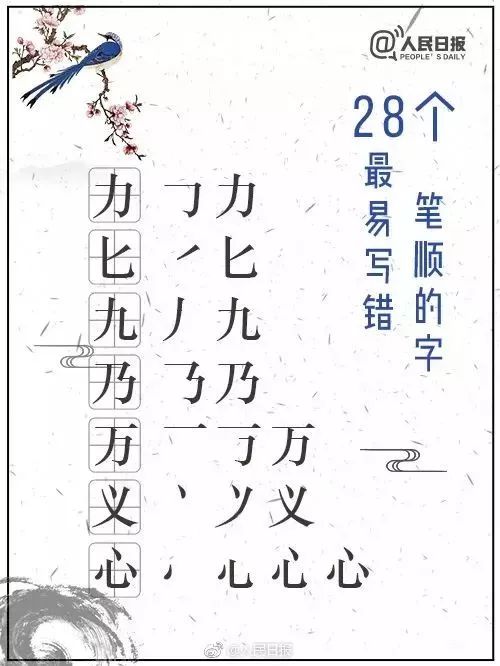 @人民日报
PEOPLE'S DAILY
28个
最易写错
笔顺的字
力 ㇆ 力
匕 ㇒ 匕
九 丿 九
乃 ㇋ 乃
万 一 万
义 丶 义
心 丶 心 心
@人民日报